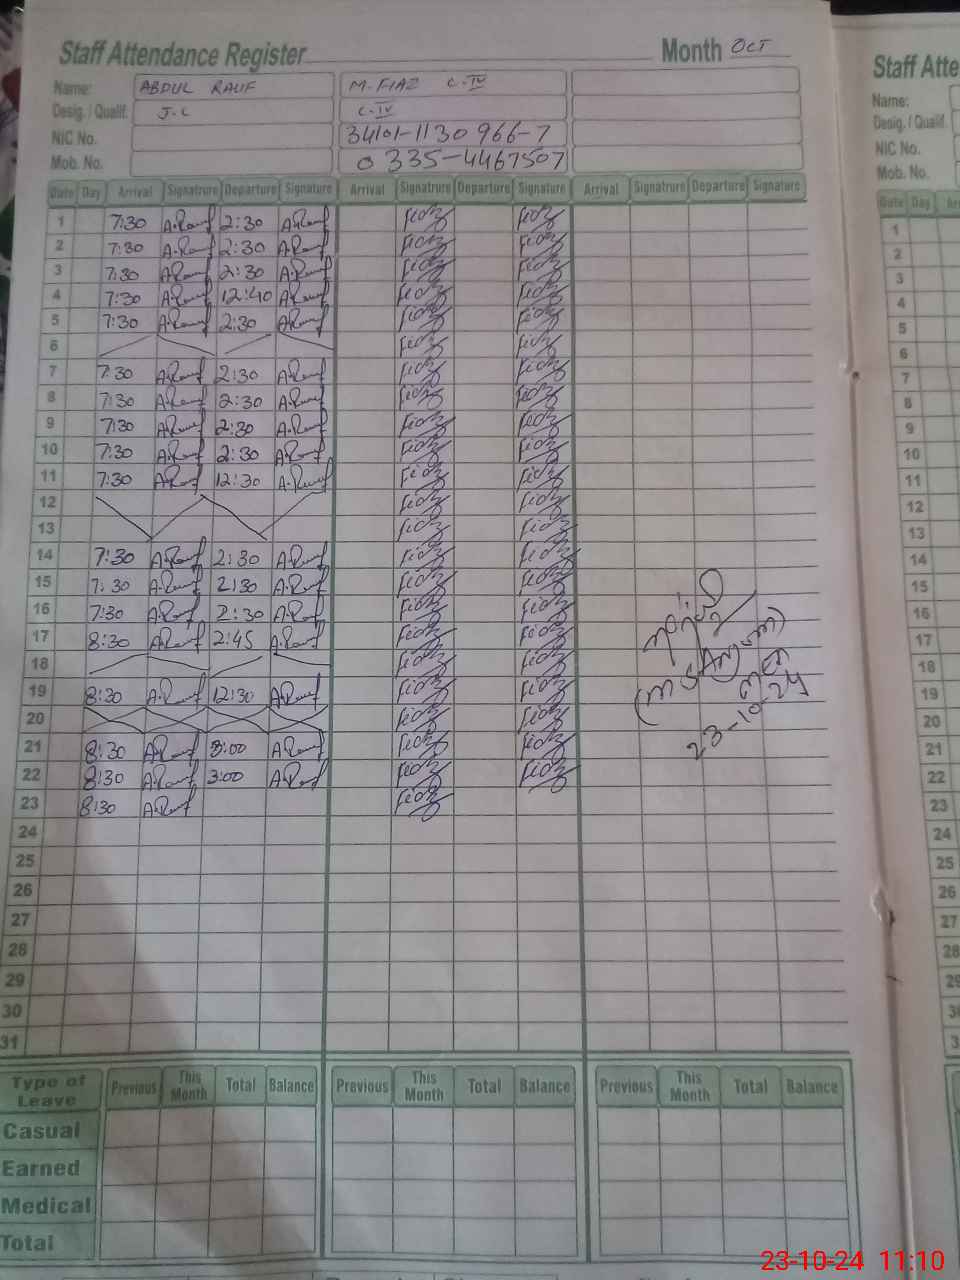 Staff Attendance Register Month OCT
Name: ABDUL RAUF M. FIAZ C-IV
Desig. / Qualif. J.C C-IV
NIC No. 34101-1130966-7
Mob. No. 0335-4467507
Date Day Arrival Signatrure Departure Signature Arrival Signatrure Departure Signature Arrival Signatrure Departure Signature
1 7:30 A.Rauf 2:30 A.Rauf Fiaz Fiaz
2 7:30 A.Rauf 2:30 A.Rauf Fiaz Fiaz
3 7:30 A.Rauf 2:30 A.Rauf Fiaz Fiaz
4 7:30 A.Rauf 12:40 A.Rauf Fiaz Fiaz
5 7:30 A.Rauf 2:30 A.Rauf Fiaz Fiaz
6 Fiaz Fiaz
7 7:30 A.Rauf 2:30 A.Rauf Fiaz Fiaz
8 7:30 A.Rauf 2:30 A.Rauf Fiaz Fiaz
9 7:30 A.Rauf 2:30 A.Rauf Fiaz Fiaz
10 7:30 A.Rauf 2:30 A.Rauf Fiaz Fiaz
11 7:30 A.Rauf 12:30 A.Rauf Fiaz Fiaz
12 Fiaz Fiaz
13 Fiaz Fiaz
14 7:30 A.Rauf 2:30 A.Rauf Fiaz Fiaz
15 7:30 A.Rauf 2:30 A.Rauf Fiaz Fiaz
16 7:30 A.Rauf 2:30 A.Rauf Fiaz Fiaz
17 8:30 A.Rauf 2:45 A.Rauf Fiaz Fiaz
18 Fiaz Fiaz
19 8:30 A.Rauf 12:30 A.Rauf Fiaz Fiaz
20 Fiaz Fiaz
21 8:30 A.Rauf 3:00 A.Rauf Fiaz Fiaz
22 8:30 A.Rauf 3:00 A.Rauf Fiaz Fiaz
23 8:30 A.Rauf Fiaz
24
25
26
27
28
29
30
31
(M S Anjum)
23-10-24
Type of Leave Previous This Month Total Balance Previous This Month Total Balance Previous This Month Total Balance
Casual
Earned
Medical
Total
Staff Atte
Name:
Desig. / Qualif.
NIC No.
Mob. No.
Date Day
1
2
3
4
5
6
7
8
9
10
11
12
13
14
15
16
17
18
19
20
21
22
23
24
25
26
27
28
23-10-24 11:10